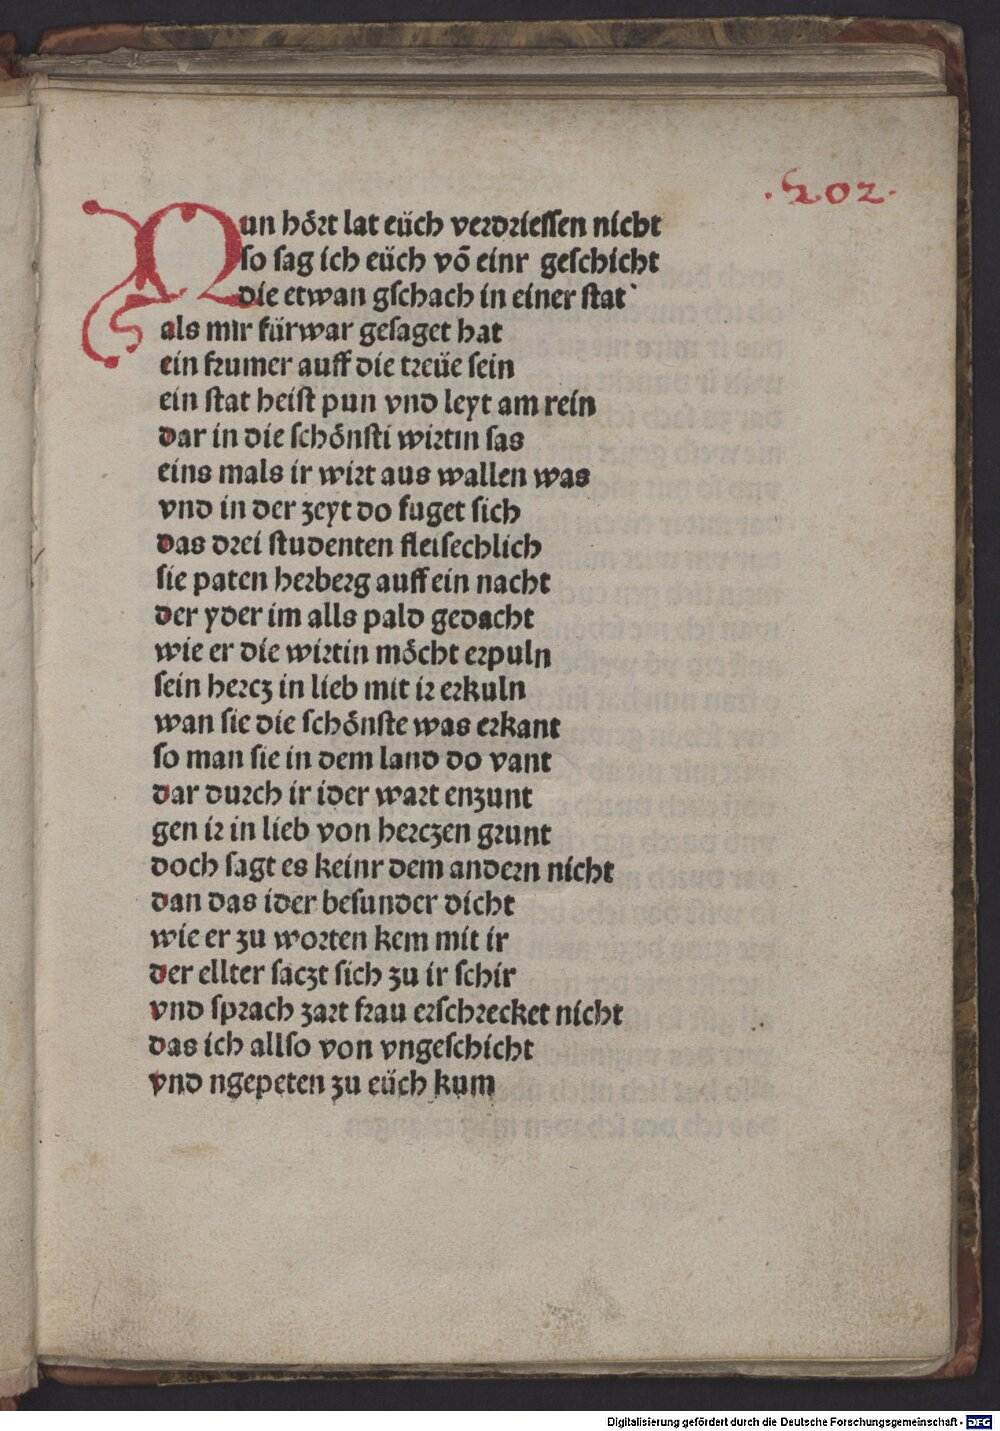 .202.
Nun hört lat eüch verdriessen nicht
so sag ich eüch võ einr geschicht
die etwan gschach in einer stat
als mir fürwar gesaget hat
ein frumer auff die treüe sein
ein stat heist pun vnd leyt am rein
dar in die schönsti wirtin sas
eins mals ir wirt aus wallen was
vnd in der zeyt do fuget sich
das drei studenten fleisechlich
sie paten herberg auff ein nacht
der yder im alls pald gedacht
wie er die wirtin möcht erpuln
sein hercz in lieb mit ir erkuln
wan sie die schönste was erkant
so man sie in dem land do vant
dar durch ir ider wart enzunt
gen ir in lieb von herczen grunt
doch sagt es keinr dem andern nicht
dan das ider besunder dicht
wie er zu worten kem mit ir
der ellter saczt sich zu ir schir
vnd sprach zart frau erschrecket nicht
das ich allso von vngeschicht
vnd ngepeten zu eüch kum
Digitalisierung gefördert durch die Deutsche Forschungsgemeinschaft - DFG